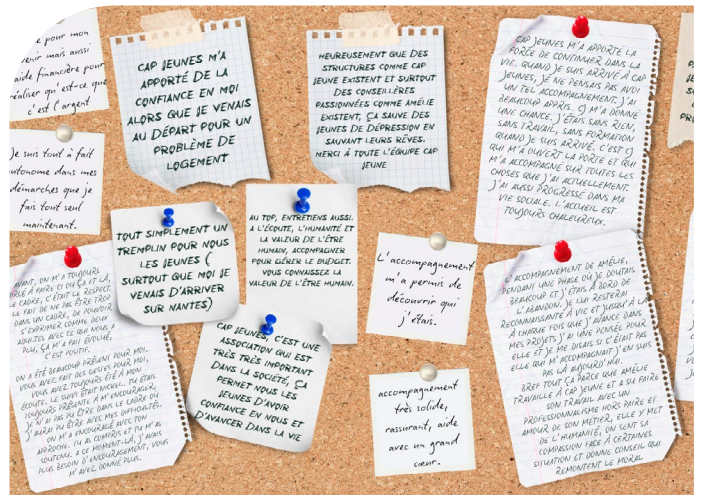 e pour mon
enir mais aussi
aide financière pour
réaliser qu'est-ce que
c'est l'argent
Je suis tout à fait
autonome dans mes
démarches que je
fais tout seul
maintenant.
CAP JEUNES M'A
APPORTÉ DE LA
CONFIANCE EN MOI
ALORS QUE JE VENAIS
AU DÉPART POUR UN
PROBLÈME DE
LOGEMENT
HEUREUSEMENT QUE DES
STRUCTURES COMME CAP
JEUNE EXISTENT ET SURTOUT
DES CONSEILLÈRES
PASSIONNÉES COMME AMÉLIE
EXISTENT, ÇA SAUVE DES
JEUNES DE DÉPRESSION EN
SAUVANT LEURS RÊVES.
MERCI À TOUTE L'ÉQUIPE CAP
JEUNE
CAP JEUNES M'A APPORTÉ LA
FORCE DE CONTINUER DANS LA
VIE. QUAND JE SUIS ARRIVÉ À CAP
JEUNES, JE NE PENSAIS PAS AVOI
UN TEL ACCOMPAGNEMENT. J'AI
BEAUCOUP APPRIS. CJ M'A DONNÉ
UNE CHANCE, J'ÉTAIS SANS RIEN,
SANS TRAVAIL, SANS FORMATION
QUAND JE SUIS ARRIVÉ. C'EST CJ
QUI M'A OUVERT LA PORTE ET QUI
M'A ACCOMPAGNÉ SUR TOUTES LES
CHOSES QUE J'AI ACTUELLEMENT.
J'AI AUSSI PROGRESSÉ DANS MA
VIE SOCIALE. L'ACCUEIL EST
TOUJOURS CHALEUREUX.
TOUT SIMPLEMENT UN
TREMPLIN POUR NOUS
LES JEUNES (
SURTOUT QUE MOI JE
VENAIS D'ARRIVER
SUR NANTES)
AU TOP, ENTRETIENS AUSSI.
A L'ÉCOUTE, L'HUMANITÉ ET
LA VALEUR DE L'ÊTRE
HUMAIN, ACCOMPAGNER
POUR GÉRER LE BUDGET.
VOUS CONNAISSEZ LA
VALEUR DE L'ÊTRE HUMAIN.
L'accompagnement
m'a permis de
découvrir qui
j'étais.
AVANT, ON M'A TOUJOURS
FORCÉ À FAIRE CI OU ÇA ET LÀ,
LE CADRE, C'ÉTAIT LE RESPECT.
LE FAIT DE NE PAS ÊTRE TROP
DANS UN CADRE, DE POUVOIR
S'EXPRIMER COMME DEUX
ADULTES AVEC CE QUI NOUS A
PLU, ÇA M'A FAIT ÉVOLUÉ,
C'EST POSITIF.
ON A ÉTÉ BEAUCOUP PRÉSENT POUR MOI.
VOUS AVEZ FAIT DES GESTES POUR MOI,
VOUS AVEZ TOUJOURS ÉTÉ À MON
ÉCOUTE. LE SUIVI ÉTAIT NICKEL. TU ÉTAIS
TOUJOURS PRÉSENTE À M'ENCOURAGER.
JE N'AI PAS PU ÊTRE DANS LE CADRE OÙ
J'AURAI PU ÊTRE AVEC MES DIFFICULTÉS.
ON M'A ENCOURAGÉ AVEC TON
APPROCHE. TU AS COMPRIS ET TU M'AS
SOUTENU. À CE MOMENT-LÀ, J'AVAIS
PLUS BESOIN D'ENCOURAGEMENT, VOUS
M'AVEZ DONNÉ PLUS.
CAP JEUNES, C'EST UNE
ASSOCIATION QUI EST
TRÈS TRÈS IMPORTANT
DANS LA SOCIÉTÉ, ÇA
PERMET NOUS LES
JEUNES D'AVOIR
CONFIANCE EN NOUS ET
D'AVANCER DANS LA VIE
accompagnement
très solide,
rassurant, aide
avec un grand
cœur.
L'ACCOMPAGNEMENT DE AMÉLIE,
PENDANT UNE PHASE OÙ JE DOUTAIS
BEAUCOUP ET J'ÉTAIS À BORD DE
L'ABANDON. JE LUI RESTERAI
RECONNAISSANTE À VIE ET JUSQU'À LÀ
À CHAQUE FOIS QUE J'AVANCE DANS
MES PROJETS J'AI UNE PENSÉE POUR
ELLE ET JE ME DISAIS SI C'ÉTAIT PAS
ELLE QUI M'ACCOMPAGNAIT J'EN SUIS
PAS LÀ AUJOURD'HUI.
BREF TOUT ÇA PARCE QUE AMÉLIE
TRAVAILLE À CAP JEUNE ET A SU FAIRE
SON TRAVAIL AVEC UN
PROFESSIONNALISME HORS PAIRE ET
AMOUR DE SON MÉTIER, ELLE Y MET
DE L'HUMANITÉ, ON SENT SA
COMPASSION FACE À CERTAINES
SITUATION ET DONNE CONSEIL QUI
REMONTENT LE MORAL